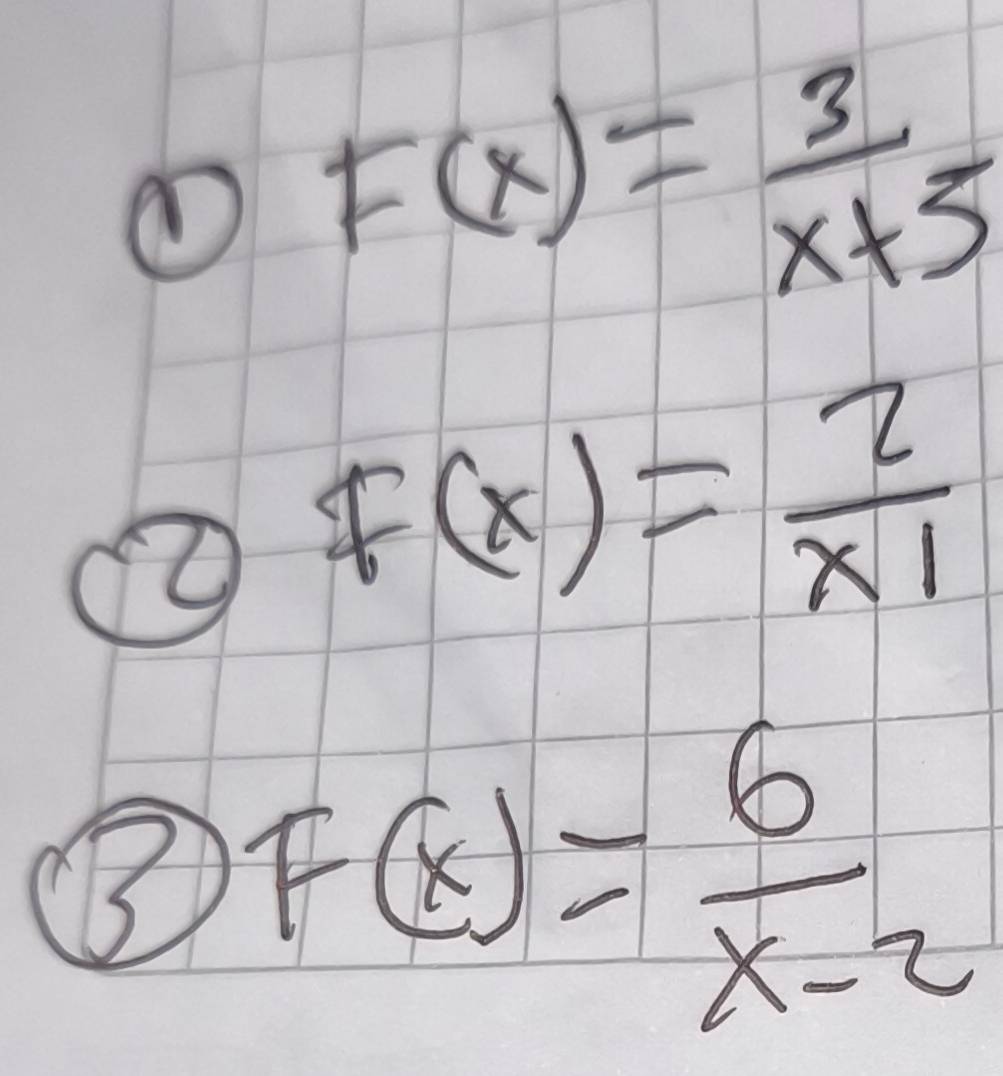 ① F(x) = 3/(x+5)
② F(x) = 2/(x 1)
③ F(x) = 6/(x-2)